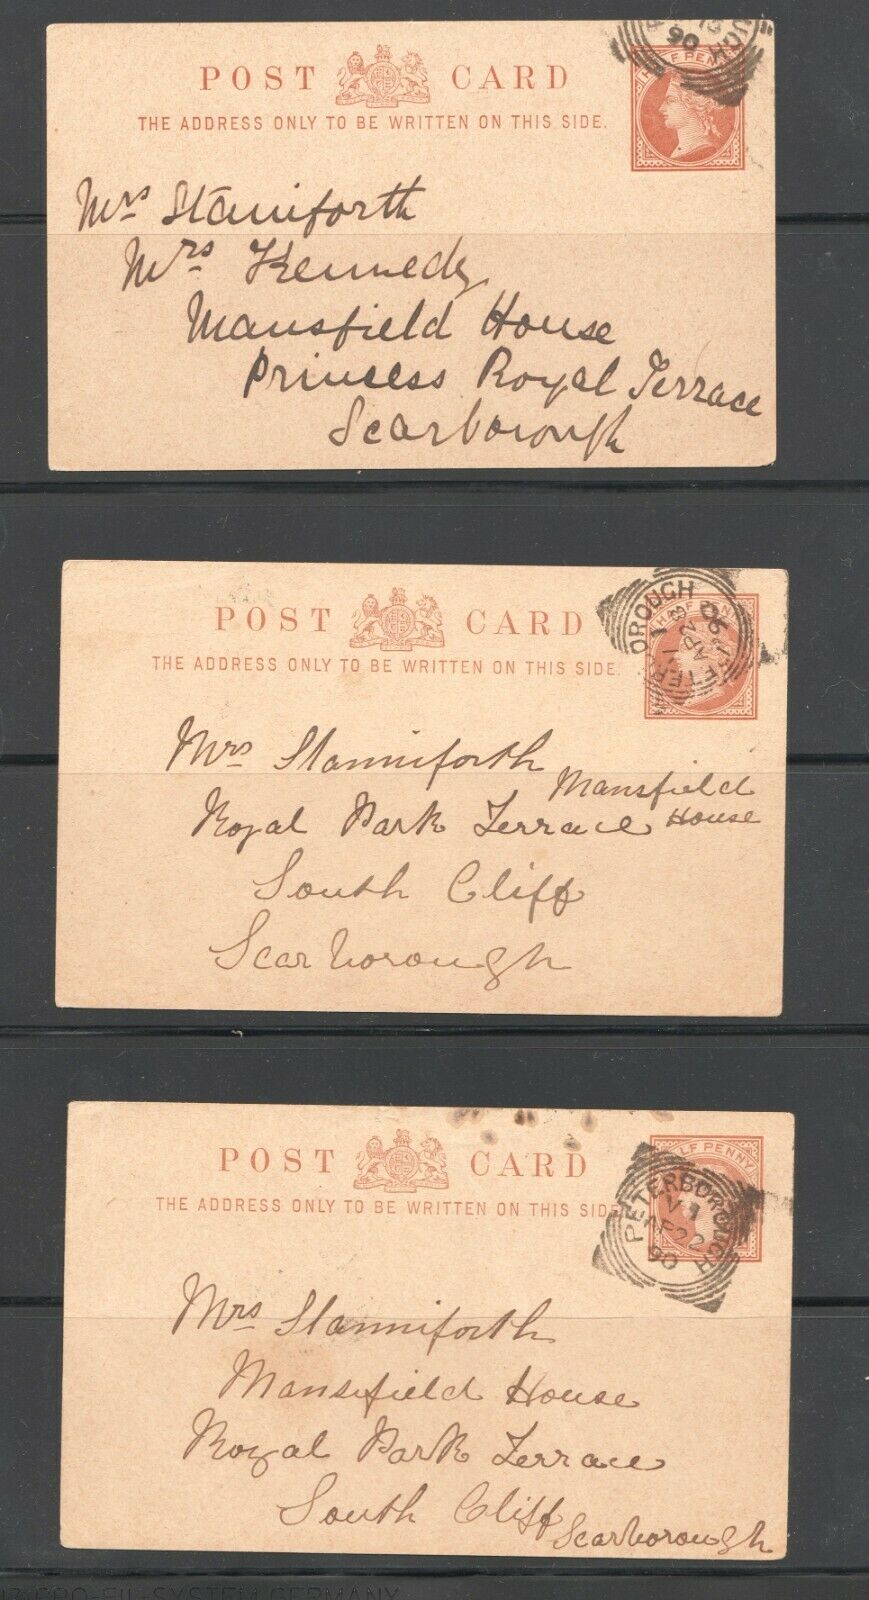 POST CARD
THE ADDRESS ONLY TO BE WRITTEN ON THIS SIDE.
HALF PENNY
90
Mrs Staniforth
Mrs Kennedy
Mansfield House
Princess Royal Terrace
Scarborough
POST CARD
THE ADDRESS ONLY TO BE WRITTEN ON THIS SIDE.
HALF PENNY
PETERBOROUGH
AP 2
90
Mrs Stanniforth
Mansfield
Royal Park Terrace House
South Cliff
Scarborough
POST CARD
THE ADDRESS ONLY TO BE WRITTEN ON THIS SIDE
HALF PENNY
PETERBOROUGH
AP 22
90
Mrs Stanniforth
Mansfield House
Royal Park Terrace
South Cliff
Scarborough
PRO-FIL-SYSTEM GERMANY